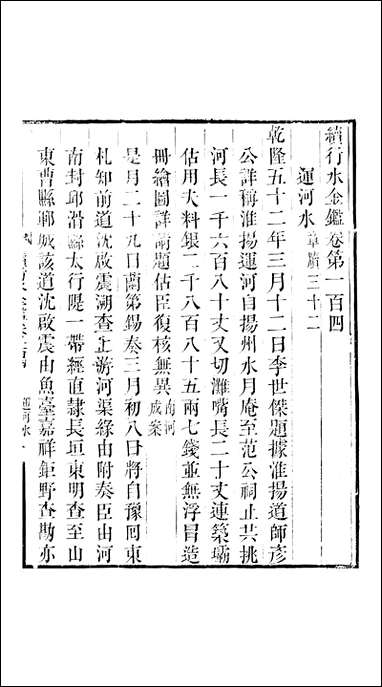 續行水金鑑卷第一百四
運河水 章牘三十二
乾隆五十二年三月十二日李世傑題據淮揚道師彥
公詳稱淮揚運河自揚州水月庵至范公祠止共挑
河長一千六百八十丈又切灘嘴長二十丈連築壩
估用夫料銀二千八百八十五兩七錢並無浮冒造
冊繪圖詳請題估臣復核無異 南河成案
是月二十九日蘭第錫奏三月初八日將自豫回東
札知前道沈啟震湖查上游河渠緣由附奏臣由河
南封邱滑縣太行隄一帶經直隸長垣東明查至山
東曹縣鄆城該道沈啟震由魚臺嘉祥鉅野查勘亦
運河水 一